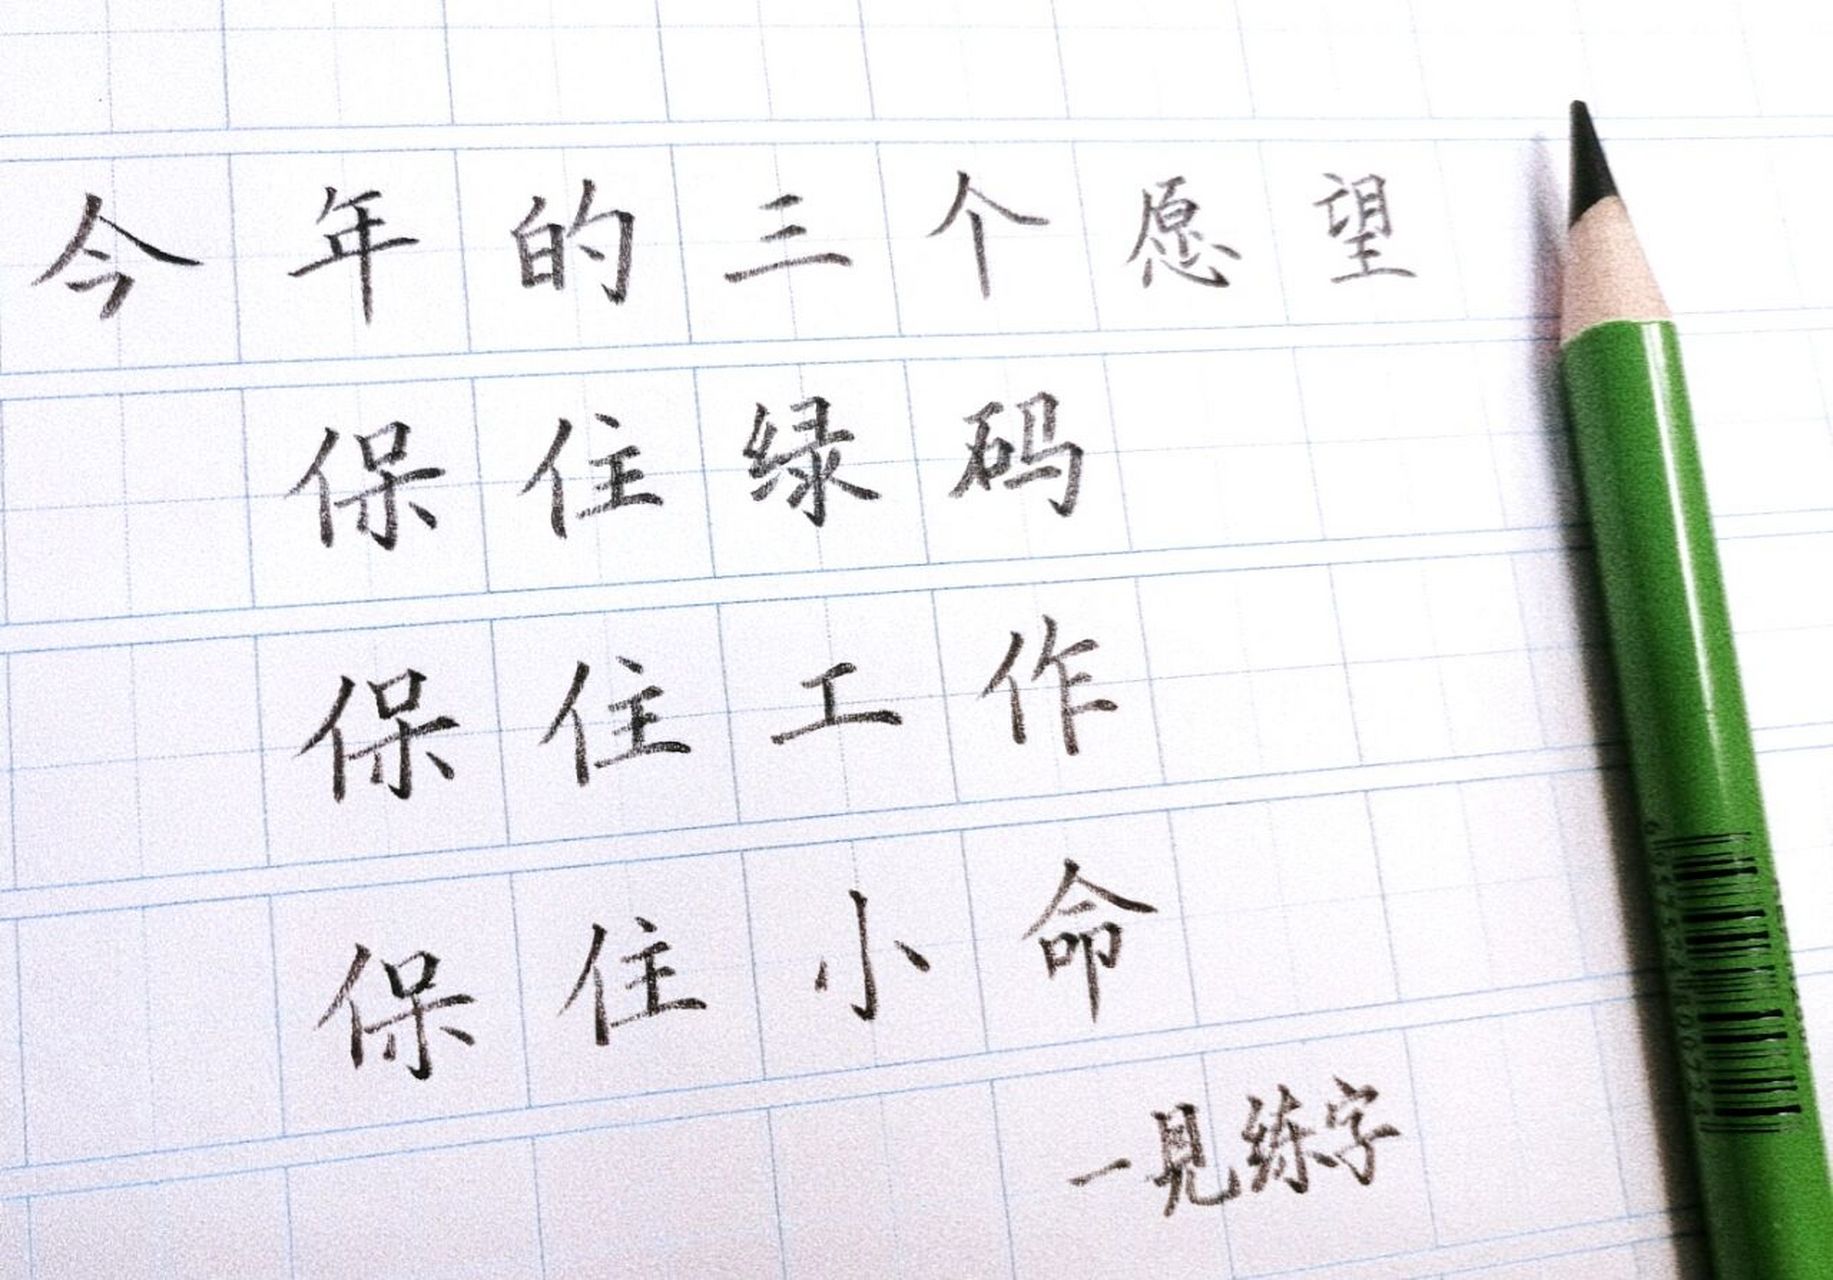 今年的三个愿望
保住绿码
保住工作
保住小命
一見练字